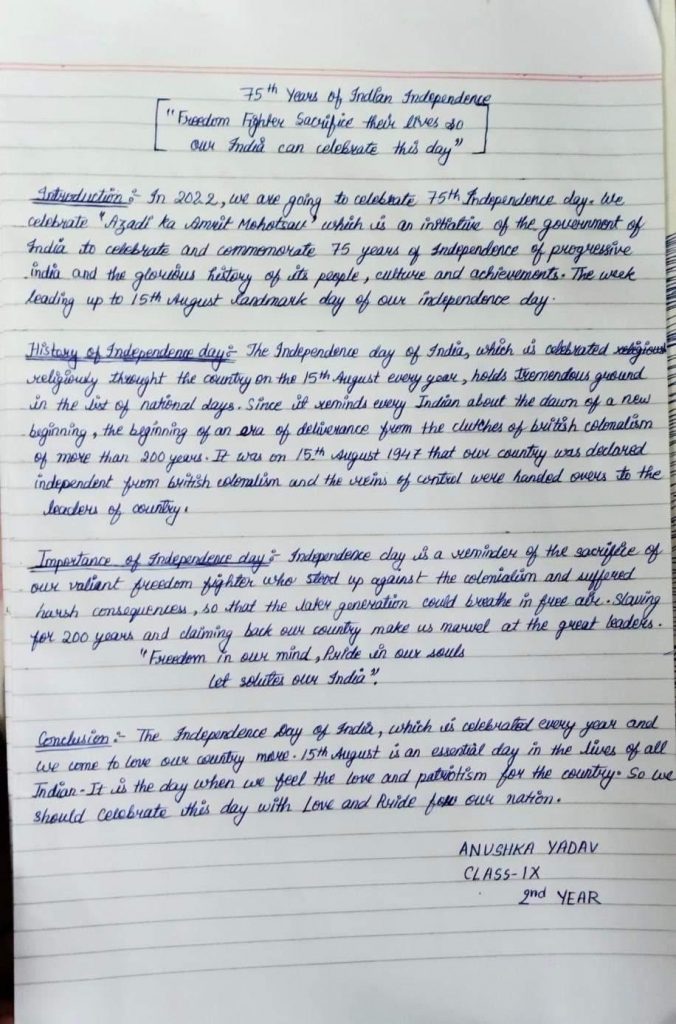 75th Years of Indian Independence
"Freedom Fighter Sacrifice their lives so
our India can celebrate this day"
Introduction:- In 2022, we are going to celebrate 75th Independence day. We
celebrate "Azadi ka Amrit Mohotsav" which is an initiative of the government of
India to celebrate and commemorate 75 years of Independence of progressive
india and the glorious history of its people, culture and achievements. The week
leading up to 15th August landmark day of our independence day.
History of Independence day:- The Independence day of India, which is celebrated religious
religiously throught the country on the 15th August every year, holds tremendous ground
in the list of national days. Since it reminds every Indian about the dawn of a new
beginning, the beginning of an era of deliverance from the clutches of british colonalism
of more than 200 years. It was on 15th August 1947 that our country was declared
independent from british colonalism and the reins of control were handed overs to the
leaders of country.
Importance of Independence day:- Independence day is a reminder of the sacrifice of
our valiant freedom fighter who stood up against the colonialism and suffered
harsh consequences, so that the later generation could breathe in free air. Slaving
for 200 years and claiming back our country make us marvel at the great leaders.
"Freedom in our mind, Pride in our souls
let solutes our India".
Conclusion:- The Independence Day of India, which is celebrated every year and
we come to love our country more. 15th August is an essential day in the lives of all
Indian. It is the day when we feel the love and patriotism for the country. So we
should celebrate this day with Love and Pride for our nation.
ANUSHKA YADAV
CLASS-IX
2nd YEAR